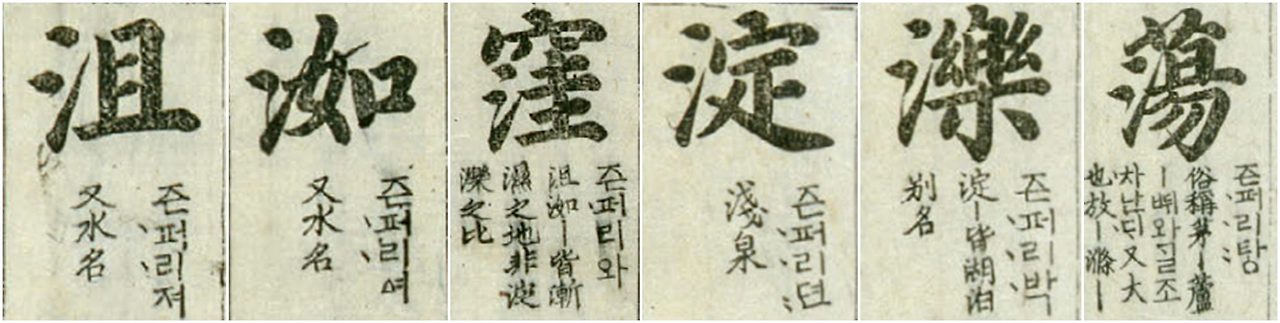 沮
즌퍼리져
又水名
洳
즌퍼리여
又水名
窪
즌퍼리와
沮洳ー皆漸
濕之地非淀
濼之比
淀
즌퍼리뎐
淺泉
濼
즌퍼리박
淀ー皆湖泊
别名
蕩
즌퍼리탕
俗稱茅ー蘆
ーᄠᅱ와ᄀᆞᆯ조
차난ᄃᆡ又大
也放ー滌ー